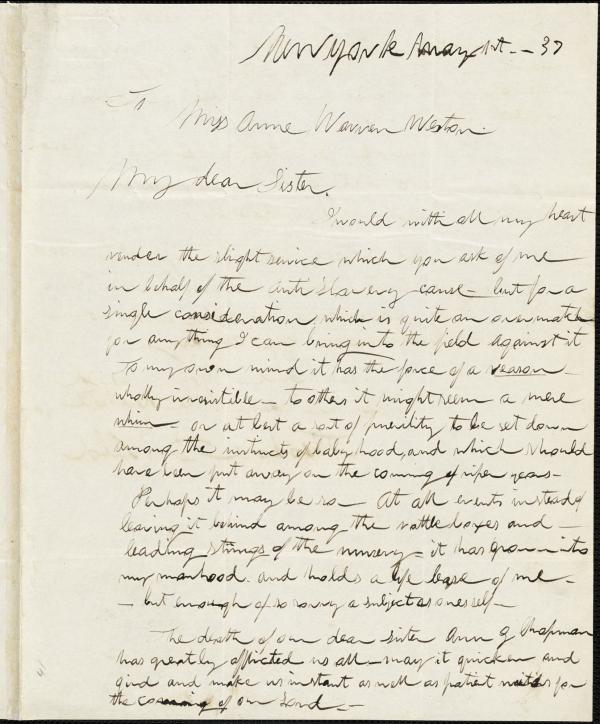 New York May 1st. - 37
To
Miss Anne Warren Weston.
My dear Sister.
I would with all my heart
render the slight service which you ask of me
in behalf of the anti slavery cause - but for a
single consideration, which is quite an overmatch
for anything I can bring into the field against it
To my own mind it has the force of a reason -
wholly irresistible - to others it might seem a mere
whim - or at best a sort of puerility to be set down
among the instincts of babyhood, and which should
have been put away on the coming of riper years -
Perhaps it may be so - At all events instead of
leaving it behind among the rattle boxes and -
leading strings of the nursery - it has grown into
my manhood. and holds a life lease of me -
- but enough of so sorry a subject as oneself -
The death of our dear sister Ann G Chapman
has greatly afflicted us all - may it quicken and
gird and make us instant as well as patient for
the coming of our Lord. -